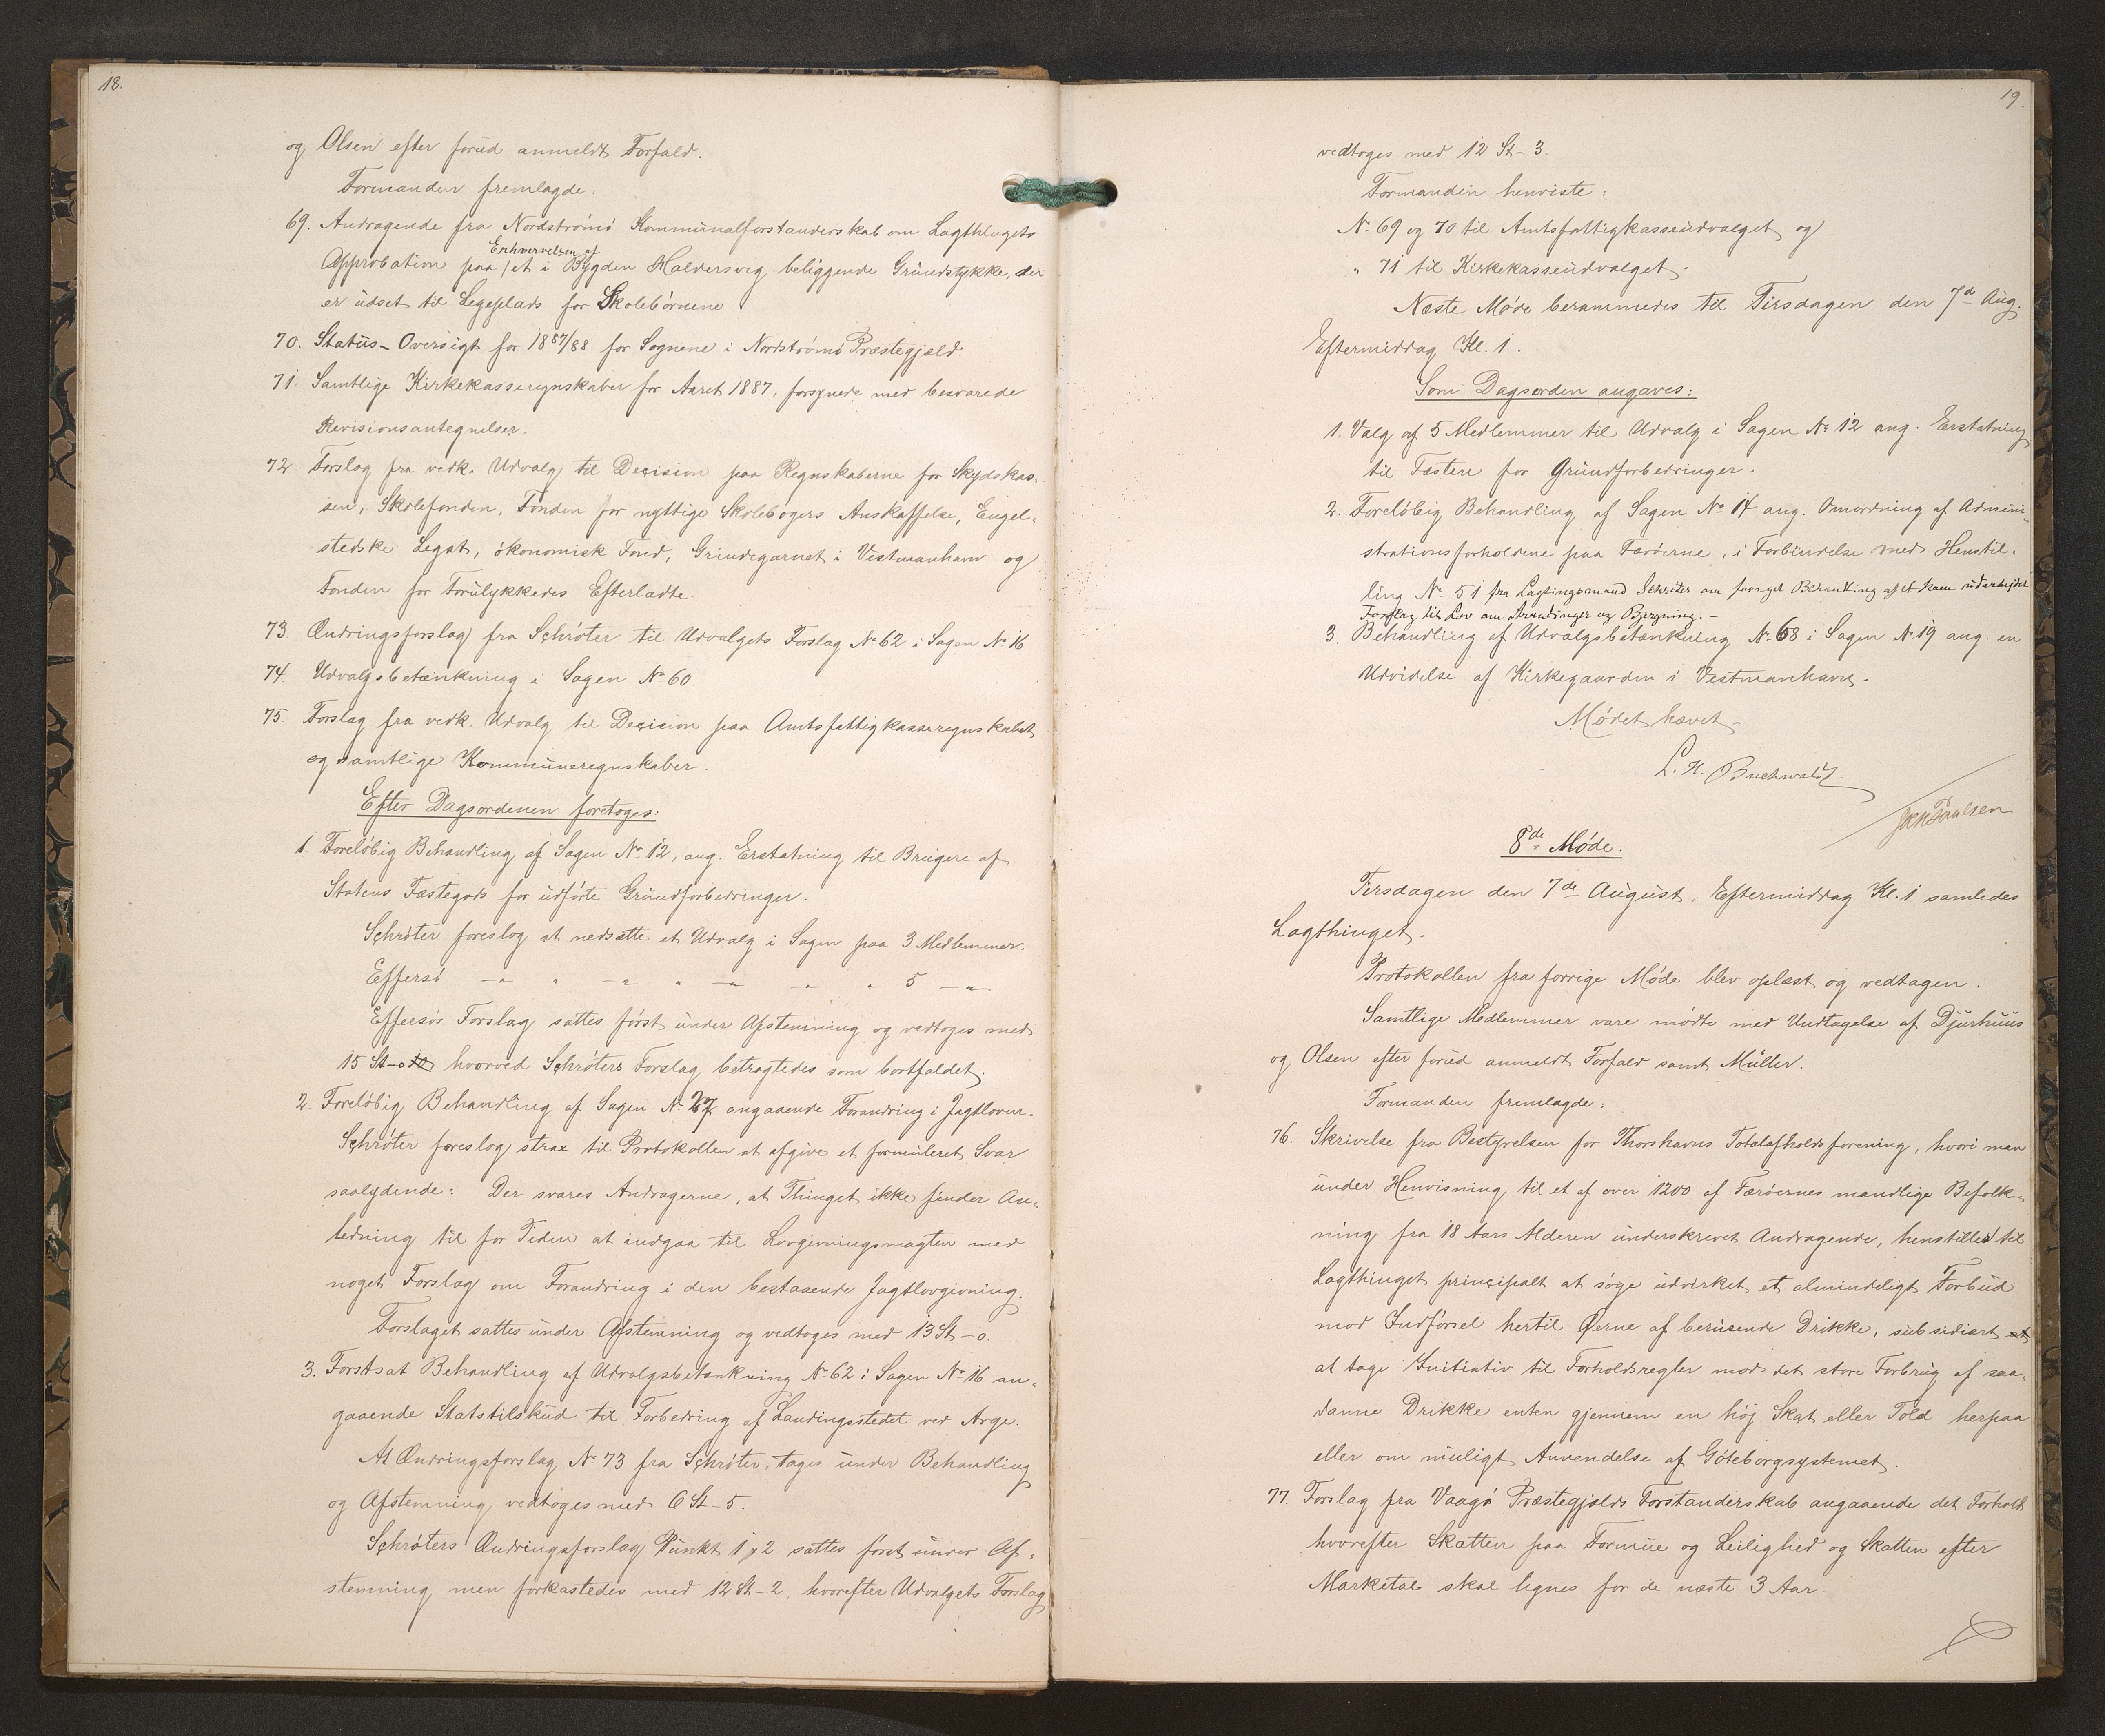 18.
og Olsen efter forud anmeldt Forfald.
Formanden fremlagde:
69. Andragende fra Nordstrømø Kommunalforstanderskab om Lagthingets
Erhvervelsen af
Approbation paa et i Bygden Haldersvig beliggende Grundstykke, der
er udset til Legeplads for Skolebørnene
70. Status-Oversigt for 1887/88 for Sognene i Nordstrømø Præstegjæld.
71. Samtlige Kirkekasseregnskaber for Aaret 1887, forsynede med besvarede
Revisionsantegnelser.
72. Forslag fra vedk. Udvalg til Decision paa Regnskaberne for Skydskas-
sen, Skolefonden, Fonden for nyttige Skolebogers Anskaffelse, Engel-
stedske Legat, økonomisk Fond, Grindegarnet i Vestmanhavn og
Fonden for Forulykkedes Efterladte.
73. Ændringsforslag fra Schrøter til Udvalgets Forslag No 62 i Sagen No 16
74. Udvalgsbetænkning i Sagen No 60.
75. Forslag fra vedk. Udvalg til Decision paa Amtsfattigkasseregnskabet
og samtlige Kommuneregnskaber.
Efter Dagsordenen foretoges:
1. Foreløbig Behandling af Sagen No 12, ang. Erstatning til Brugere af
Statens Fæstegods for udførte Grundforbedringer.
Schrøter foreslog at nedsætte et Udvalg i Sagen paa 3 Medlemmer.
Effersø —"— " —"— " —"— —"— " 5 —"—
Effersøs Forslag sattes først under Afstemning og vedtoges med
15 St-0 hvorved Schrøters Forslag betragtedes som bortfaldet.
2. Foreløbig Behandling af Sagen No 27 angaaende Forandring i Jagtloven.
Schrøter foreslog strax til Protokollen at afgive et formuleret Svar
saalydende: Der svares Andragerne, at Thinget ikke finder An-
ledning til for Tiden at indgaa til Lovgivningsmagten med
noget Forslag om Forandring i den bestaaende Jagtlovgivning.
Forslaget sattes under Afstemning og vedtoges med 13 St-0.
3. Fortsat Behandling af Udvalgsbetænkning No 62 i Sagen No 16 an-
gaaende Statstilskud til Forbedring af Landingsstedet ved Arge.
At Ændringsforslag No 73 fra Schrøter tages under Behandling
og Afstemning vedtoges med 6 St-5.
Schrøters Ændringsforslag Punkt 1 & 2 sattes først under Af-
stemning, men forkastedes med 12 St-2, hvorefter Udvalgets Forslag
19.
vedtoges med 12 St-3.
Formanden henviste:
No 69 og 70 til Amtsfattigkasseudvalget og
" 71 til Kirkekasseudvalget.
Næste Møde berammedes til Tirsdagen den 7de Aug.
Eftermiddag Kl. 1.
Som Dagsorden angaves:
1. Valg af 5 Medlemmer til Udvalg i Sagen No 12 ang. Erstatning
til Fæstere for Grundforbedringer.
2. Foreløbig Behandling af Sagen No 14 ang. Omordning af Admini-
strationsforholdene paa Færøerne, i Forbindelse med Henstil-
ling No 51 fra Lagtingsmand Schrøter om fornyet Behandling af et ham udarbejdet
Forslag til Lov om Strandinger og Bjergning.-
3. Behandling af Udvalgsbetænkning No 68 i Sagen No 19 ang. en
Udvidelse af Kirkegaarden i Vestmanhavn.
Mødet hævet
L. H. Buchwaldt.
Paulsen
8de Møde.
Tirsdagen den 7de August, Eftermiddag Kl. 1 samledes
Lagthinget.
Protokollen fra forrige Møde blev oplæst og vedtagen.
Samtlige Medlemmer vare mødte med Undtagelse af Djurhuus
og Olsen efter forud anmeldt Forfald samt Müller.
Formanden fremlagde:
76. Skrivelse fra Bestyrelsen for Thorshavns Totalafholdsforening, hvori man
under Henvisning til et af over 1200 af Færøernes mandlige Befolk-
ning fra 18 Aars Alderen underskrevet Andragende, henstilled til
Lagthinget principalt at søge udvirket et almindeligt Forbud
mod Indførsel hertil Øerne af berusende Drikke, subsidiært at
at tage Initiativ til Forholdsregler mod det store Forbrug af saa-
danne Drikke enten gjennem en høj Skat eller Told herpaa
eller om muligt Anvendelse af Göteborgsystemet.
77. Forslag fra Vaagø Præstegjælds Forstanderskab angaaende det Forhold
hvorefter Skatten paa Formue og Leilighed og Skatten efter
Marketal skal lignes for de næste 3 Aar.